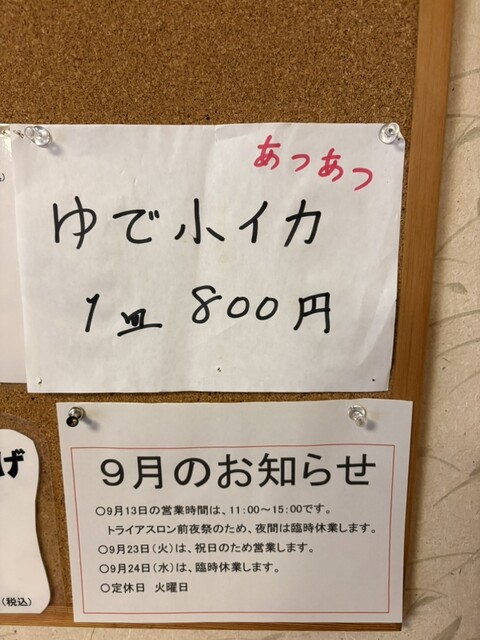 あつあつ
ゆで小イカ
1皿 800円
9月のお知らせ
○9月13日の営業時間は、11:00～15:00です。
トライアスロン前夜祭のため、夜間は臨時休業します。
○9月23日(火)は、祝日のため営業します。
○9月24日(水)は、臨時休業します。
○定休日 火曜日
げ
(税込)